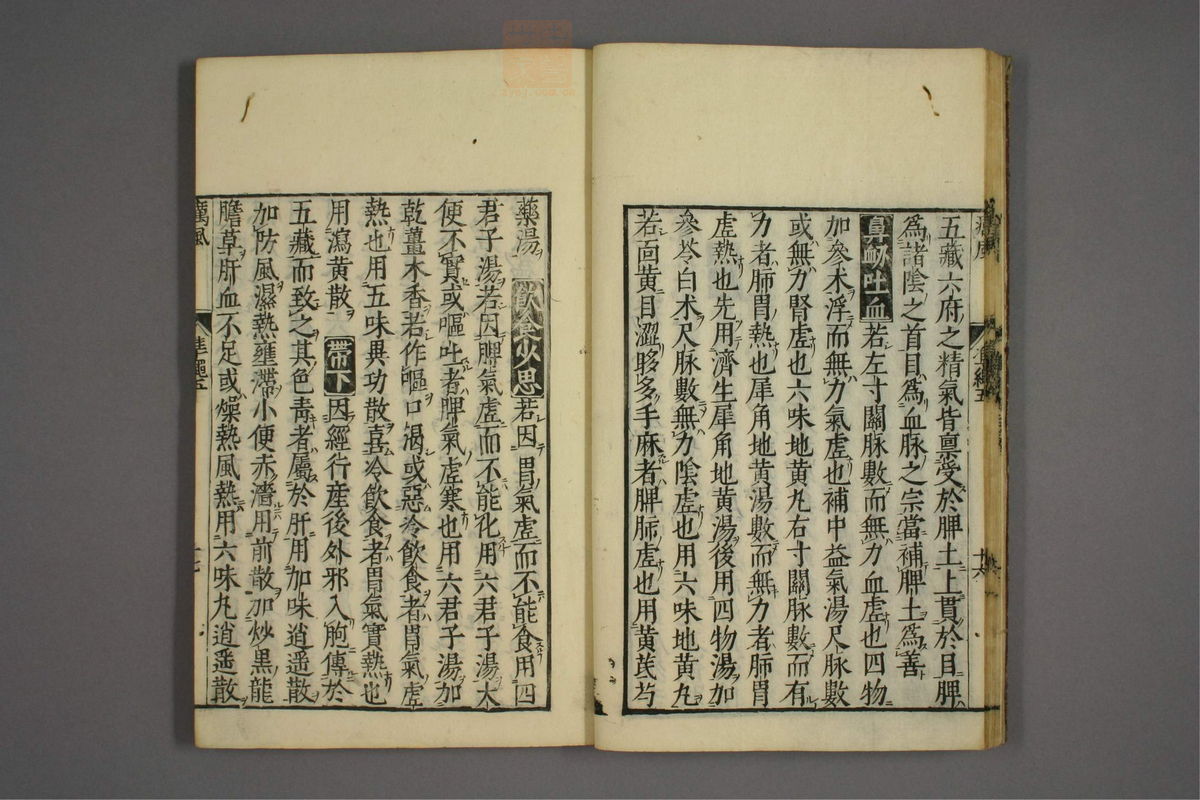 五藏六府之精氣皆禀受於脾土上貫於目脾
爲諸陰之首目爲血脉之宗當補脾土爲善
鼻衂吐血 若左寸關脉數而無力血虛也四物
加參术浮而無力氣虛也補中益氣湯尺脉數
或無力腎虛也六味地黄丸右寸關脉數而有
力者肺胃熱也犀角地黄湯數而無力者肺胃
虛熱也先用濟生犀角地黄湯後用四物湯加
參苓白术尺脉數無力陰虛也用六味地黄丸
若面黄目澀眵多手麻者脾肺虛也用黄芪芍
藥湯 飲食少思 若因胃氣虛而不能食用四
君子湯若因脾氣虛而不能化用六君子湯大
便不實或嘔吐者脾氣虛寒也用六君子湯加
乾薑木香若作嘔口渴或惡冷飲食者胃氣虛
熱也用五味異功散喜冷飲食者胃氣實熱也
用瀉黄散 帶下 因經行産後外邪入胞傳於
五藏而致之其色青者屬於肝用加味逍遥散
加防風濕熱壅滯小便赤濇用前散加炒黒龍
膽草肝血不足或燥熱風熱用六味丸逍遥散
癘風
準繩五
十七